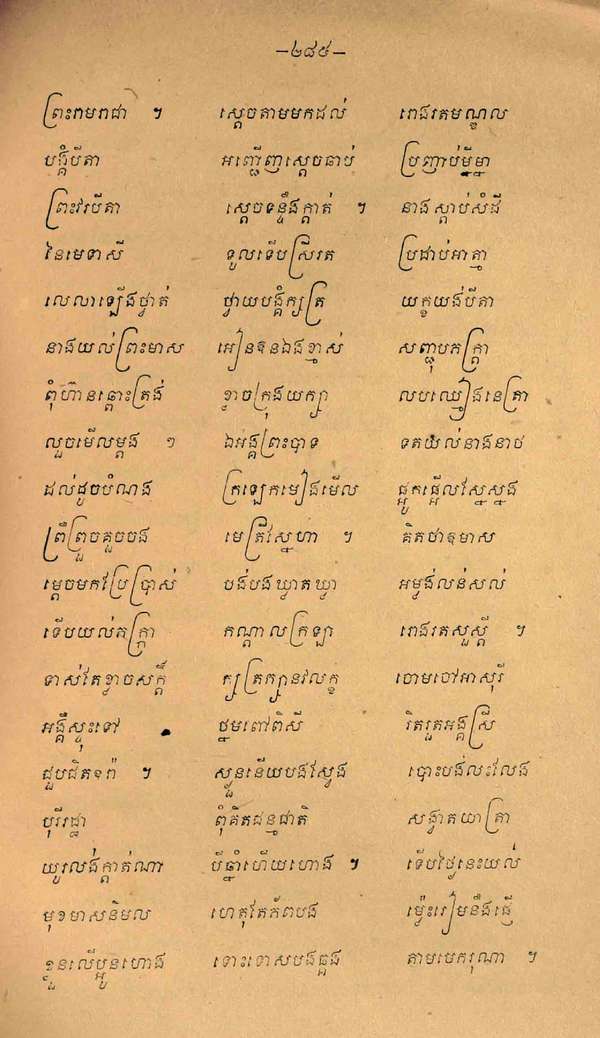 —២៨៥—
ព្រះរាមរាជា ។ ស្ដេចតាមមកដល់ រោងរតមណ្ឌល
បង្គំបីតា អញ្ជើញស្ដេចឆាប់ ប្រញាប់ម្នីម្នា
ព្រះវរបីតា ស្ដេចទន្ទឹងក្ដាត់ ។ នាងស្ដាប់សំដី
នៃមេទាសី ទួលទើបស្រីរត ប្រដាប់អាត្មា
លេលាឡើងថ្វាត់ ថ្វាយបង្គំក្សត្រ យក្ខយង់បីតា
នាងយល់ព្រះមាស អៀនខុនឯងខ្មាស់ សញ្ជុបភក្ត្រា
ពុំហ៊ានឆ្ពោះត្រង់ ខ្លាចក្រុងយក្សា លបឈ្មៀងនេត្រា
លួចមើលម្ដង ១ ឯអង្គព្រះបាទ ទតយល់នាងនាថ
ដល់ដូចបំណង ក្រឡេកមៀងមើល ផ្អូកផ្អើលស្នែស្នង
ព្រឺព្រួចគួចចង មេត្រីស្នេហា ។ គិតថាឧមាស
ម្ដេចមកប្រែប្រាស់ បង់បងឃ្វាតឃ្វា អម្វង់លន់សល់
ទើបយល់ភក្ត្រា កណ្ដាលក្រឡា រោងរតសួស្ដី ។
ទាស់តែខ្លាចសក្ដិ៍ ក្សត្រក្សានវលក្ខ ចោមចៅអាសុរី
អង្គឺស្ទុះទៅ ថ្នមពៅពិសី រិតរួតអង្គស្រី
ជួបជិតខពំ៌ ។ ស្ងួនន៊ើយបងស្វែង បោះបង់លះលែង
បុរីរដ្ឋា ពុំគិតជន្មជាតិ សង្វាតយាត្រា
យូរលង់ក្ដាត់ណា បីឆ្នាំហើយហោង ។ ទើបថ្ងៃនេះយល់
មុខមាសនិមល ហេតុតែភ័ពបង ម៉្លេះរៀមនឹងផ្ញើ
ខ្លួនលើប្អូនហោង ទោះទោសបងឆ្គង តាមមេករុណា ។